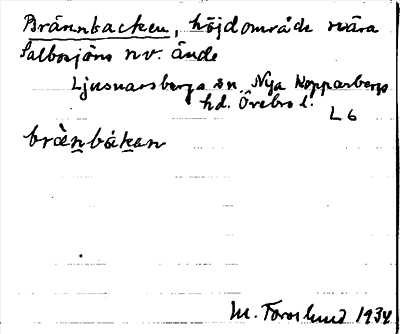 Brännbacken, höjdområde nära
Salbosjöns nv. ände
Ljusnarsbergs sn. Nya Kopparbergs
hd. Örebro l.
L 6
brän̲bák̲an
M. Forslund 1934